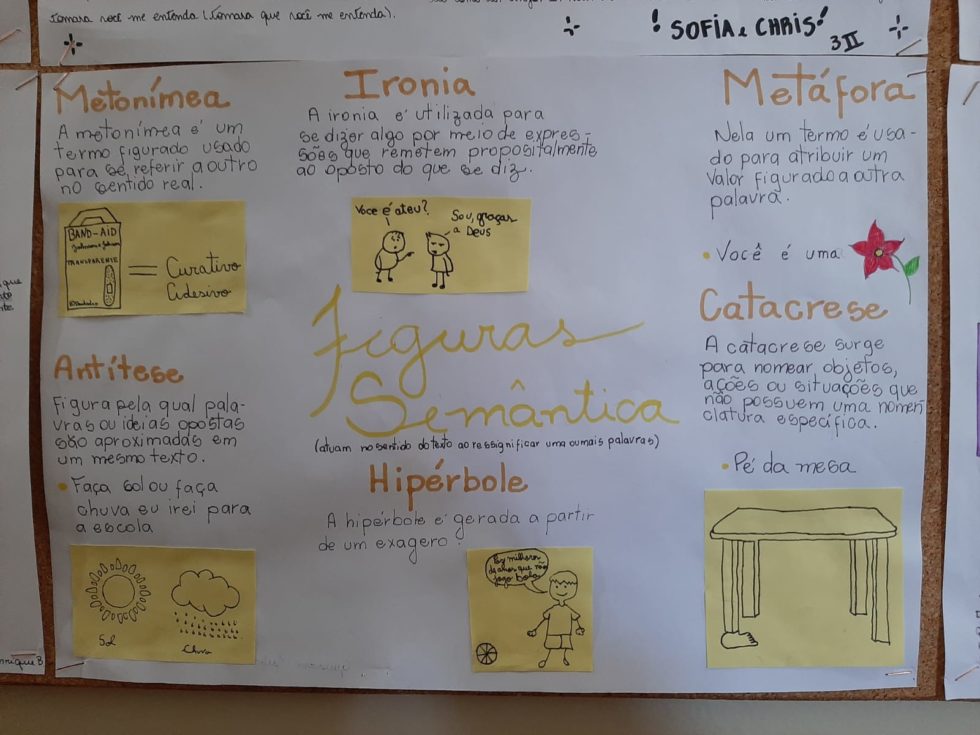 Tomara você me entenda (Tomara que você me entenda).
! SOFIA e CHRIS!
3 II
Metonímea
A metonímea é um
termo figurado usado
para se referir a outro
no sentido real.
BAND-AID
Johnson & Johnson
TRANSPARENTE
= Curativo
Adesivo
Antítese
Figura pela qual pala-
vras ou ideias opostas
são aproximadas em
um mesmo texto.
• Faça sol ou faça
chuva eu irei para
a escola
Sol
Chuva
Ironia
A ironia é utilizada para
se dizer algo por meio de expres-
sões que remetem propositalmente
ao oposto do que se diz.
Você é ateu?
Sou, graças
a Deus
Figuras
Semântica
(atuam no sentido do texto ao ressignificar uma ou mais palavras)
Hipérbole
A hipérbole é gerada a partir
de um exagero.
milhões
de anos que não
jogo bola
Metáfora
Nela um termo é usa-
do para atribuir um
valor figurado a outra
palavra.
• Você é uma
Catacrese
A catacrese surge
para nomear objetos,
ações ou situações que
não possuem uma nomen
clatura específica.
• Pé da mesa